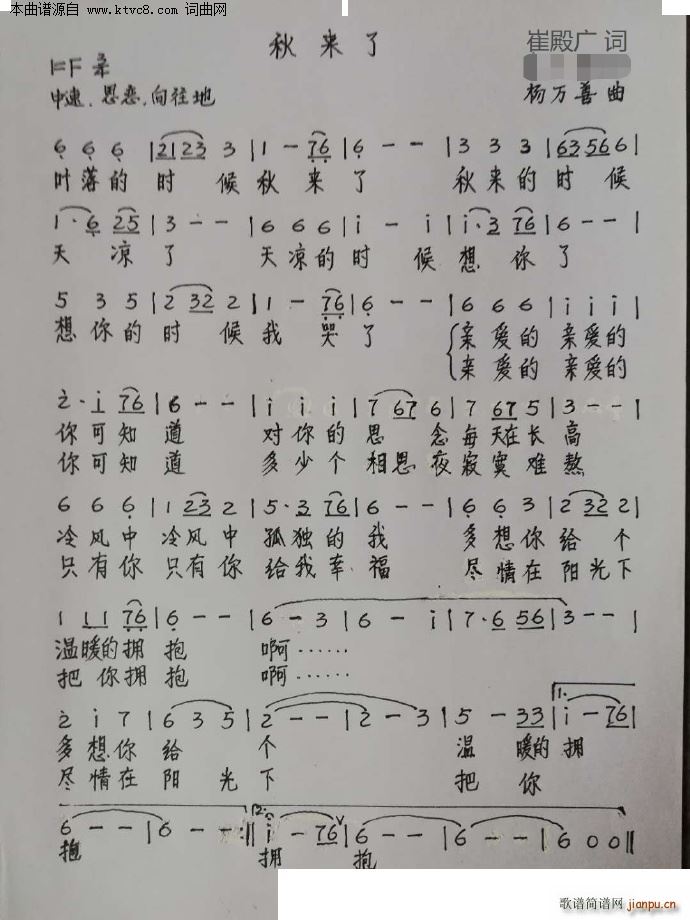 本曲谱源自 www.ktvc8.com 词曲网
秋来了
崔殿广 词
1=F 3/4
中速.思恋.向往地
杨万善 曲
6 6 6 | 2123 3 | 1 - 76 | 6 - - | 3 3 3 | 63566 |
叶落的时候秋来了 秋来的时候
1·6 25 | 3 - - | 6 6 6 | i - i | i·3 76 | 6 - - |
天凉了 天凉的时候想你了
5 3 5 | 2 32 2 | 1 - 76 | 6 - - | 6 6 6 | i i i |
想你的时候我哭了 亲爱的 亲爱的
亲爱的 亲爱的
2·i 76 | 6 - - | i i i | 7 67 6 | 7 67 5 | 3 - - |
你可知道 对你的思念每天在长高
你可知道 多少个相思夜寂寞难熬
6 6 6 | 1 23 2 | 5·3 76 | 6 - - | 6 6 3 | 2 32 2 |
冷风中 冷风中 孤独的我 多想你给个
只有你 只有你 给我幸福 尽情在阳光下
1 11 76 | 6 - - | 6 - 3 | 6 - i | 7·6 56 | 3 - - |
温暖的拥抱 啊……
把你拥抱 啊……
2 i 7 | 6 3 5 | 2 - - | 2 - 3 | 5 - 33 | 1. i - 76 |
多想你给个 温暖的拥
尽情在阳光下 把你
6 - - | 6 - - :|| 2. i - 76 v | 6 - - | 6 - - | 6 0 0 ||
抱 拥 抱
歌谱简谱网
jianpu.cn